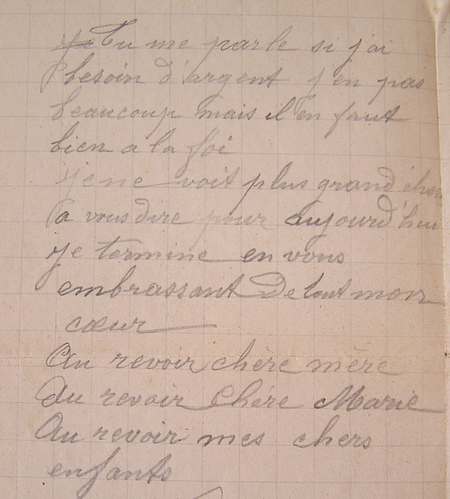 Tu me parle si j'ai
besoin d'argent j'en pas
beaucoup mais il en faut
bien a la foi
je ne voit plus grand chose
a vous dire pour aujourd'hui
je termine en vous
embrassant de tout mon
cœur
Au revoir chère mère
Au revoir Chére Marie
Au revoir mes chers
enfants